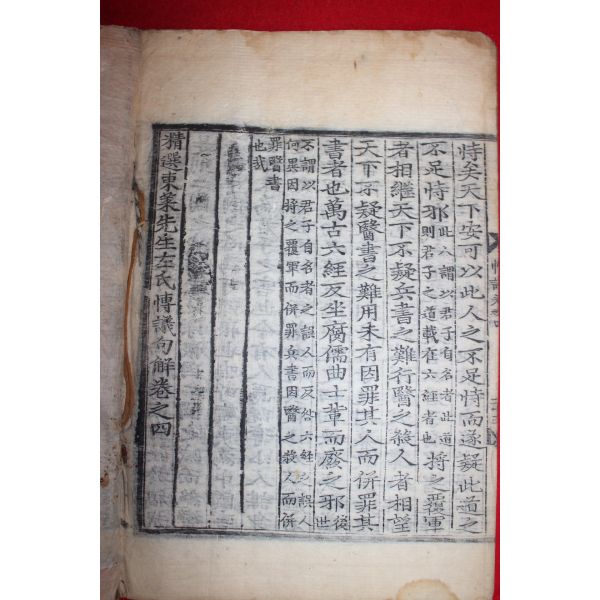 恃矣天下安可以此人之不足恃而遂疑此道之
不足恃邪此人謂以君子有名者此道則君子之道載在六經者也將之覆軍
者相繼天下不疑兵書之難行醫之殺人者相望
天下不疑醫書之難用未有因罪其人而併罪其
書者也萬古六經反坐腐儒曲士輩而廢之邪後世
不謂以君子自名者之誤人而反咎六經之誤人
何異因將之覆軍而併罪兵書因醫之殺人而併
罪醫書
也哉
精選東萊先生左氏愽議句解卷之四